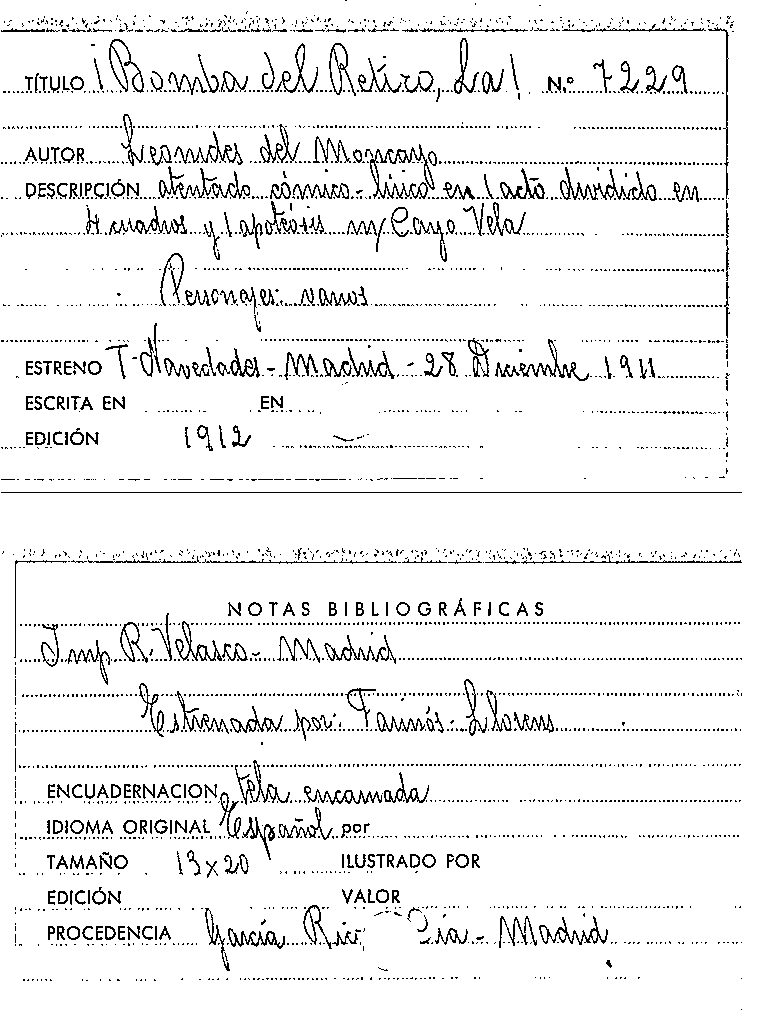 TÍTULO ¡Bomba del Retiro, La! N.º 7229
AUTOR Leonides del Moncayo
DESCRIPCIÓN atentado cómico-lírico en 1 acto dividido en
4 cuadros y 1 apoteósis m/ Cayo Vela
Personajes: varios
ESTRENO T- Novedades - Madrid - 28 Diciembre 1911
ESCRITA EN EN
EDICIÓN 1912
NOTAS BIBLIOGRÁFICAS
Imp R. Velasco - Madrid
Estrenada por: Farinós - Llorens
ENCUADERNACION tela encarnada
IDIOMA ORIGINAL Español por
TAMAÑO 13x20 ILUSTRADO POR
EDICIÓN VALOR
PROCEDENCIA García Rico Cía - Madrid